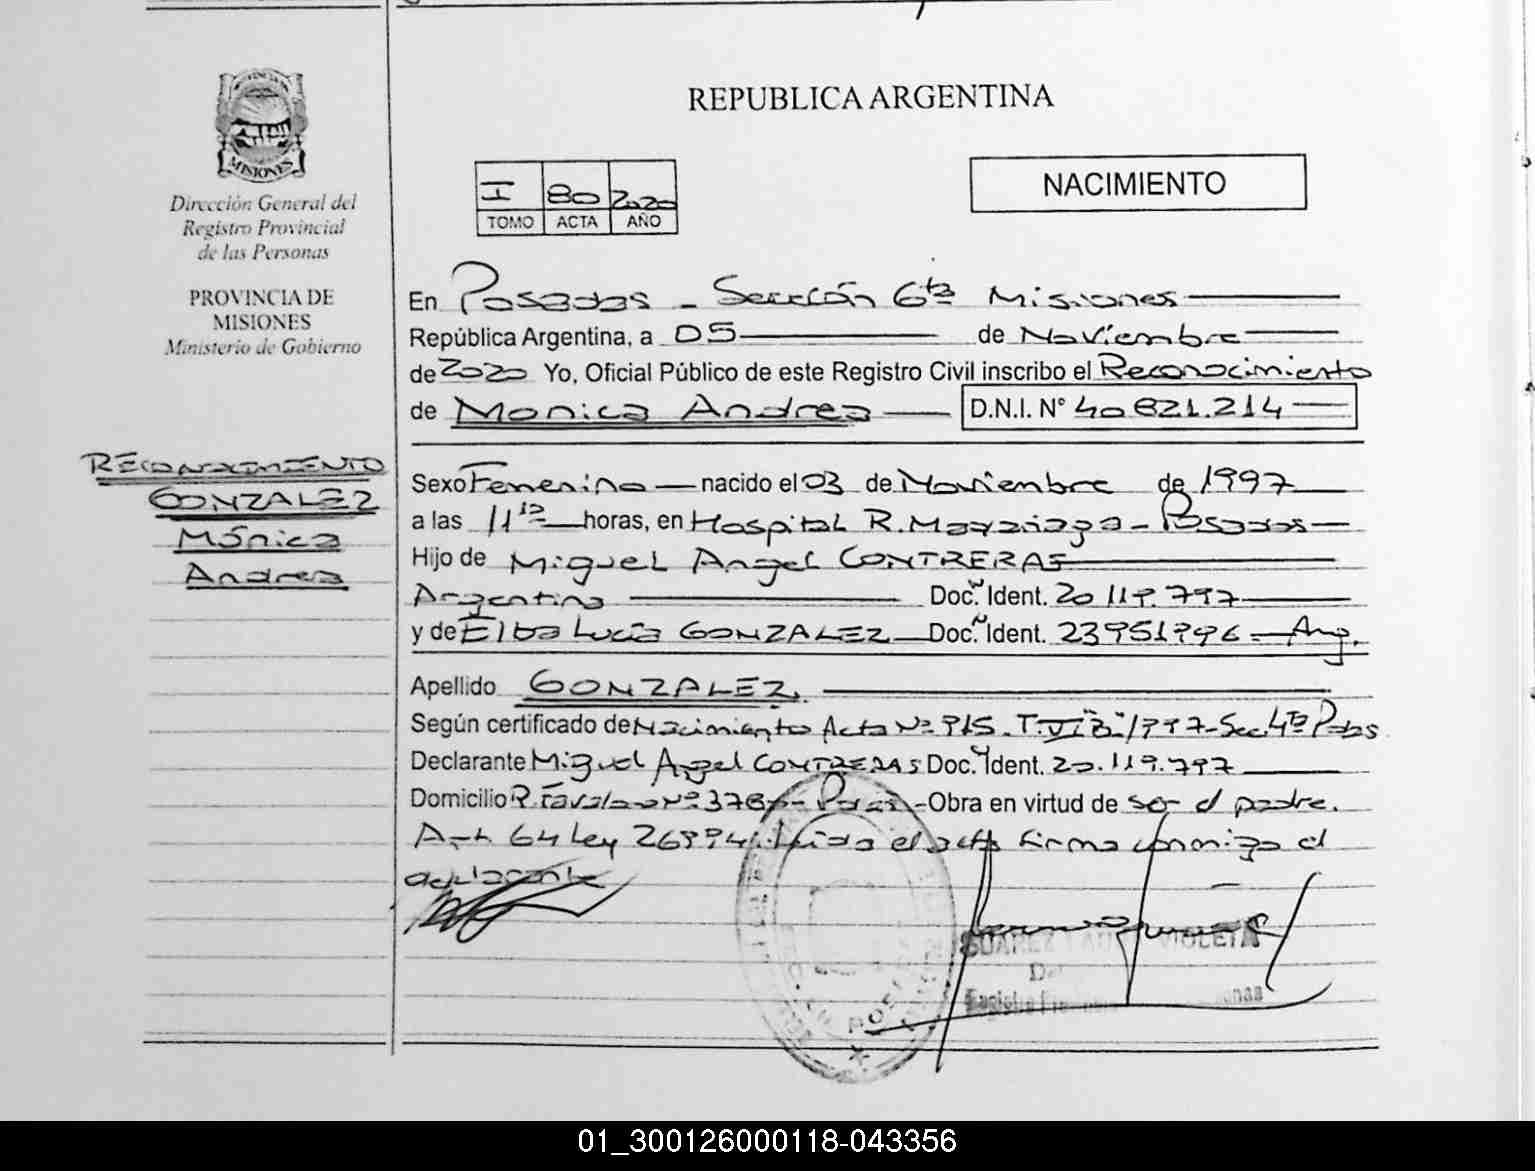 PROVINCIA DE
MISIONES
Dirección General del
Registro Provincial
de las Personas
PROVINCIA DE
MISIONES
Ministerio de Gobierno
RECONOCIMIENTO
GONZALEZ
Mónica
Andrea
REPUBLICA ARGENTINA
I 80 2020
TOMO ACTA AÑO
NACIMIENTO
En Posadas - Sección 6ta Misiones
República Argentina, a 05 de Noviembre
de 2020 Yo, Oficial Público de este Registro Civil inscribo el Reconocimiento
de Monica Andrea D.N.I. N° 40 821.214
Sexo Femenino nacido el 03 de Noviembre de 1997
a las 11 horas, en Hospital R. Madariaga - Posadas
Hijo de Miguel Angel CONTRERAS
Argentino Doc. Ident. 20 119.797
y de Elba Lucía GONZALEZ Doc. Ident. 23951996 - Arg.
Apellido GONZALEZ
Según certificado de Nacimiento Acta N° 915. T. VI "B" /1997 - Sec. 4ta Pdas
Declarante Miguel Angel CONTRERAS Doc. Ident. 20.119.797
Domicilio N° 378 - Obra en virtud de ser el padre.
Art. 64 Ley 26994. Leída el acta firma conmigo el
declarante
SUAREZ VIOLETA
POSADAS
01_300126000118-043356